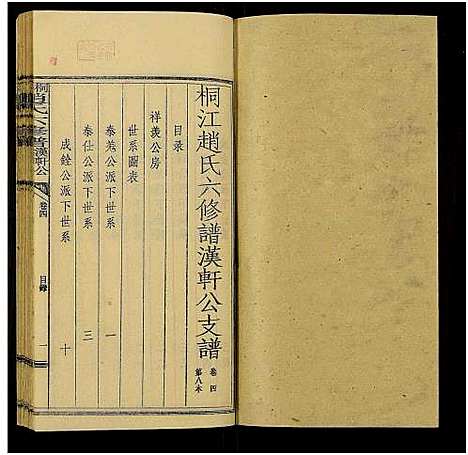 桐江趙氏六修譜漢軒公支譜
卷四
第八本
目录
祥羨公房
世系圖表
泰羌公派下世系 一
泰仕公派下世系 三
成銓公派下世系 十
卷四
目録
一